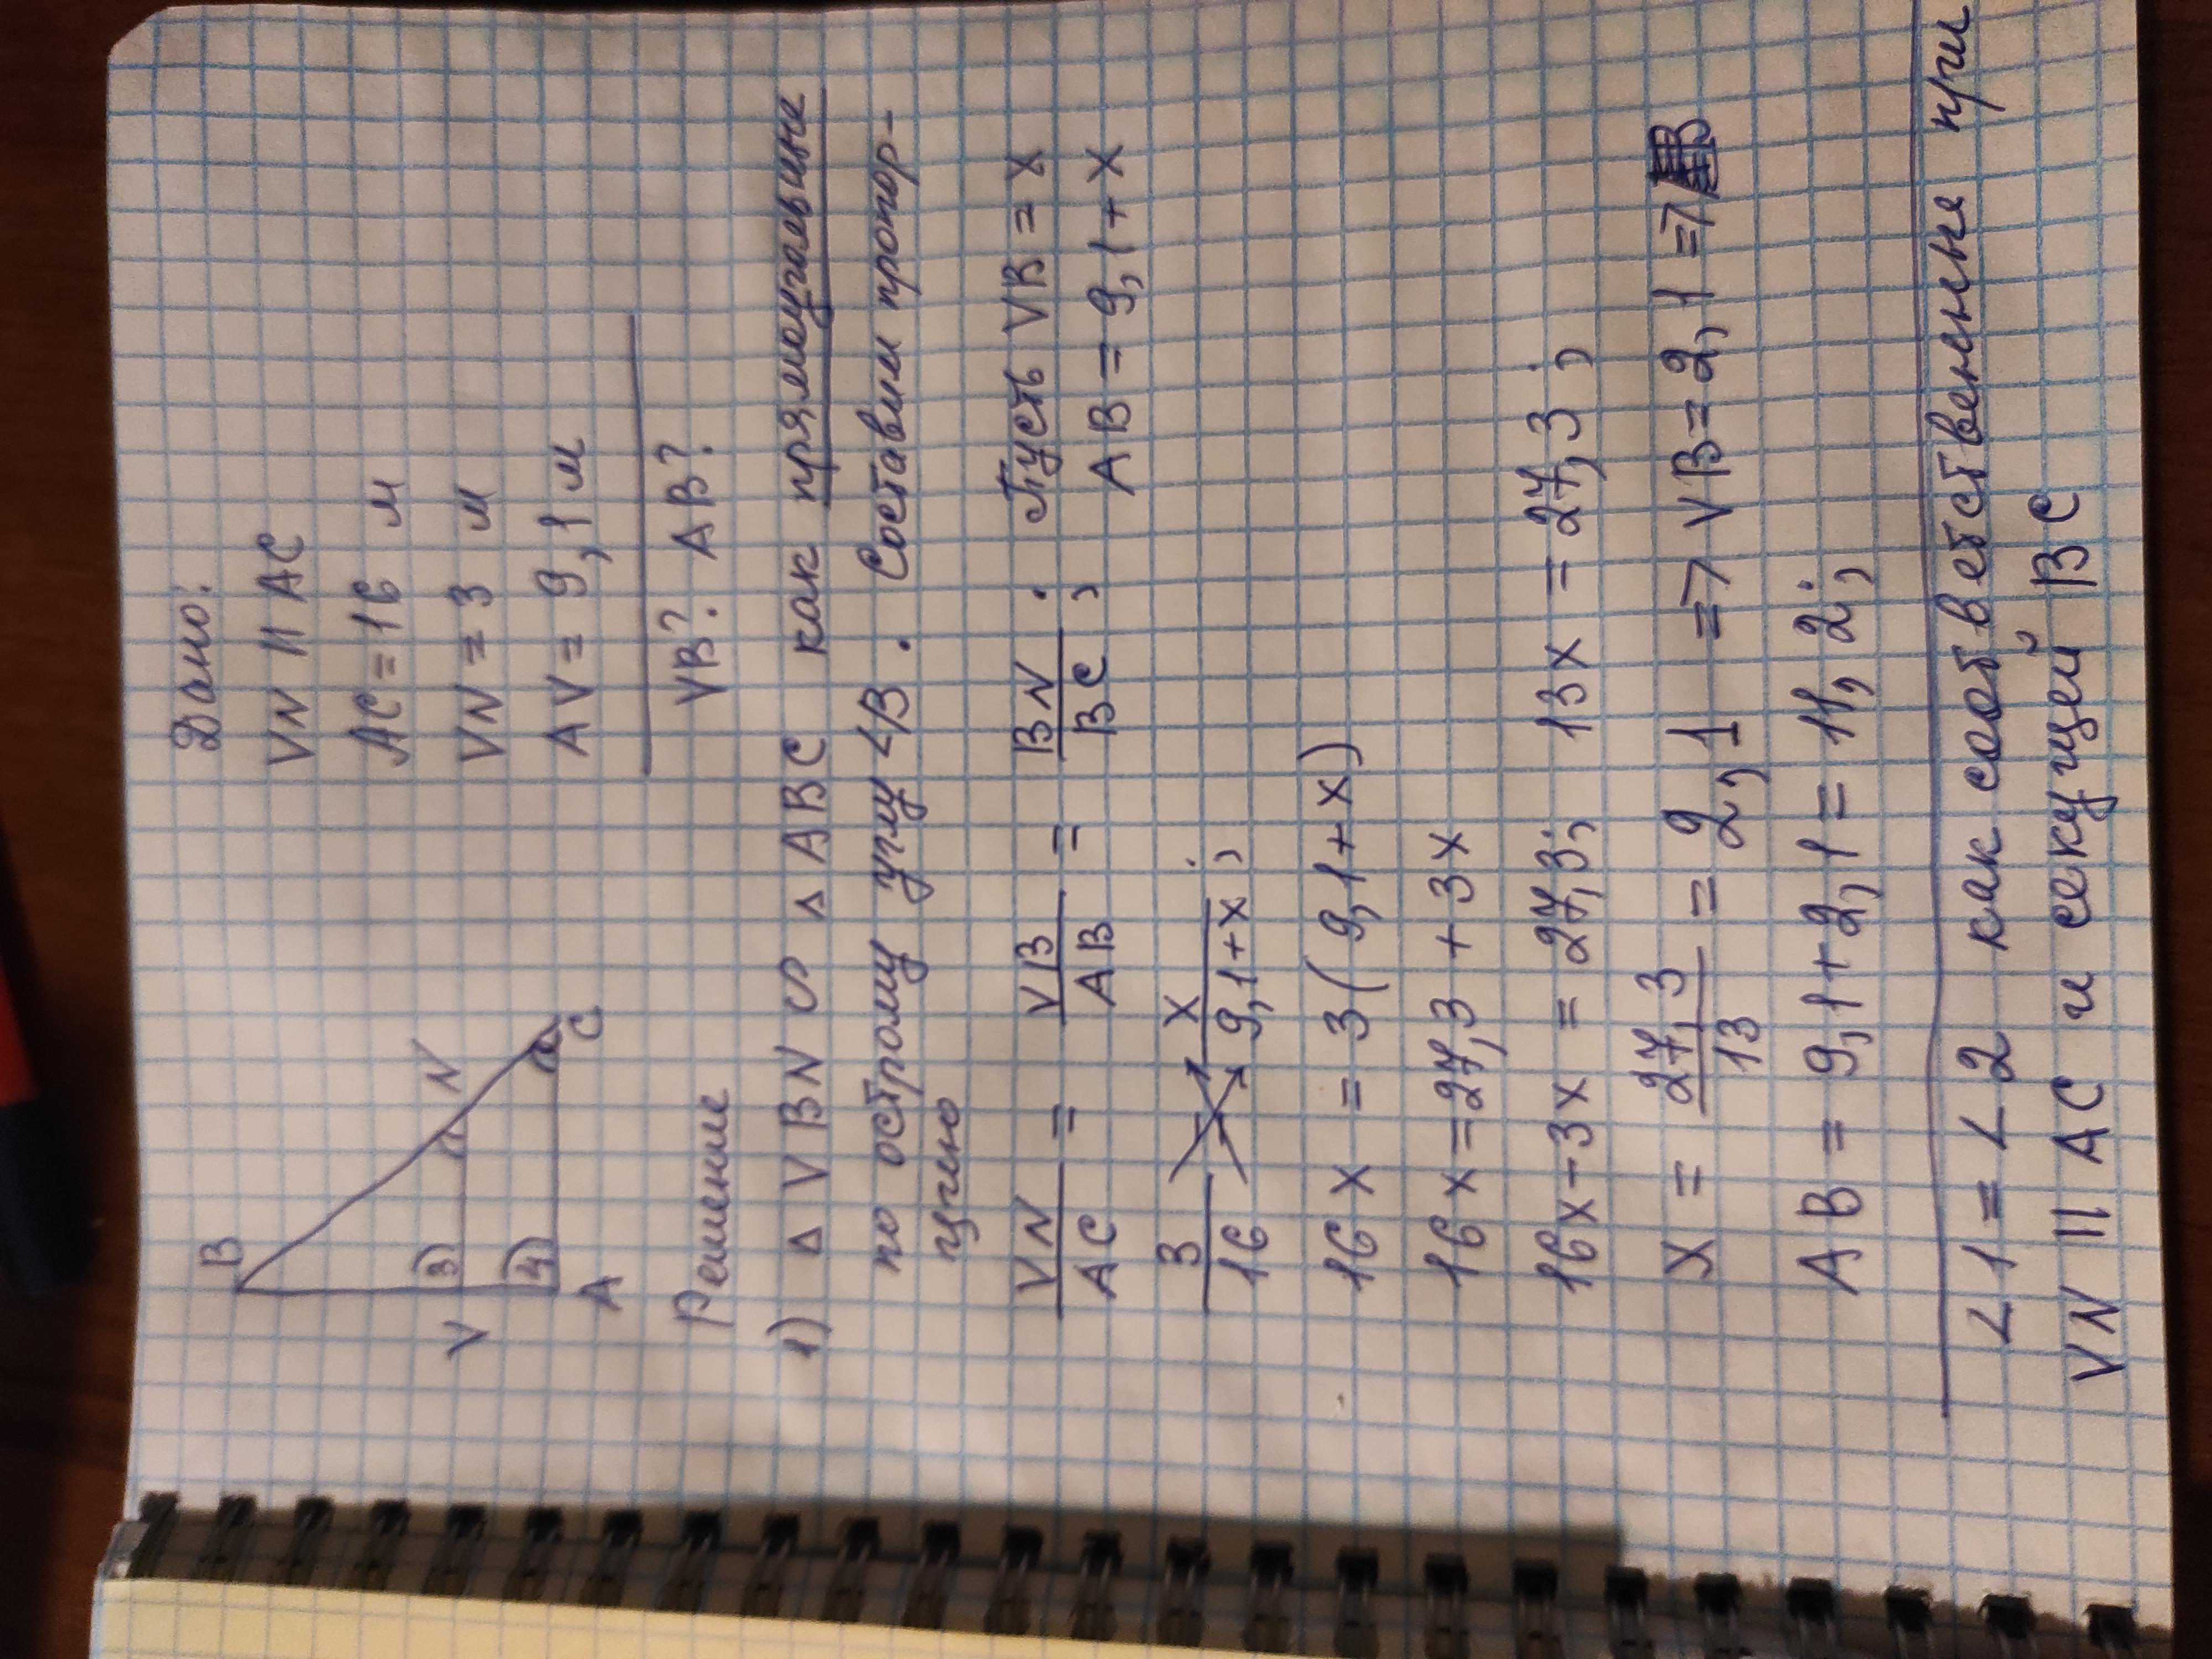 Дано:
VN || AC
AC = 16 м
VN = 3 м
AV = 9,1 м
VB? AB?
B
V
3
N
4
A
C
Решение
1) △ VBN ∽ △ ABC как прямоугольные
по острому углу ∠B. Составим пропор-
цию
VN/AC = VB/AB = BN/BC; Пусть VB = x
AB = 9,1 + x
3/16 = x/9,1+x;
16x = 3(9,1+x)
16x = 27,3 + 3x
16x - 3x = 27,3; 13x = 27,3;
x = 27,3/13 = 2,1 => VB = 2,1 =>
AB = 9,1 + 2,1 = 11,2;
∠1 = ∠2 как соответственные при
VN || AC и секущей BC